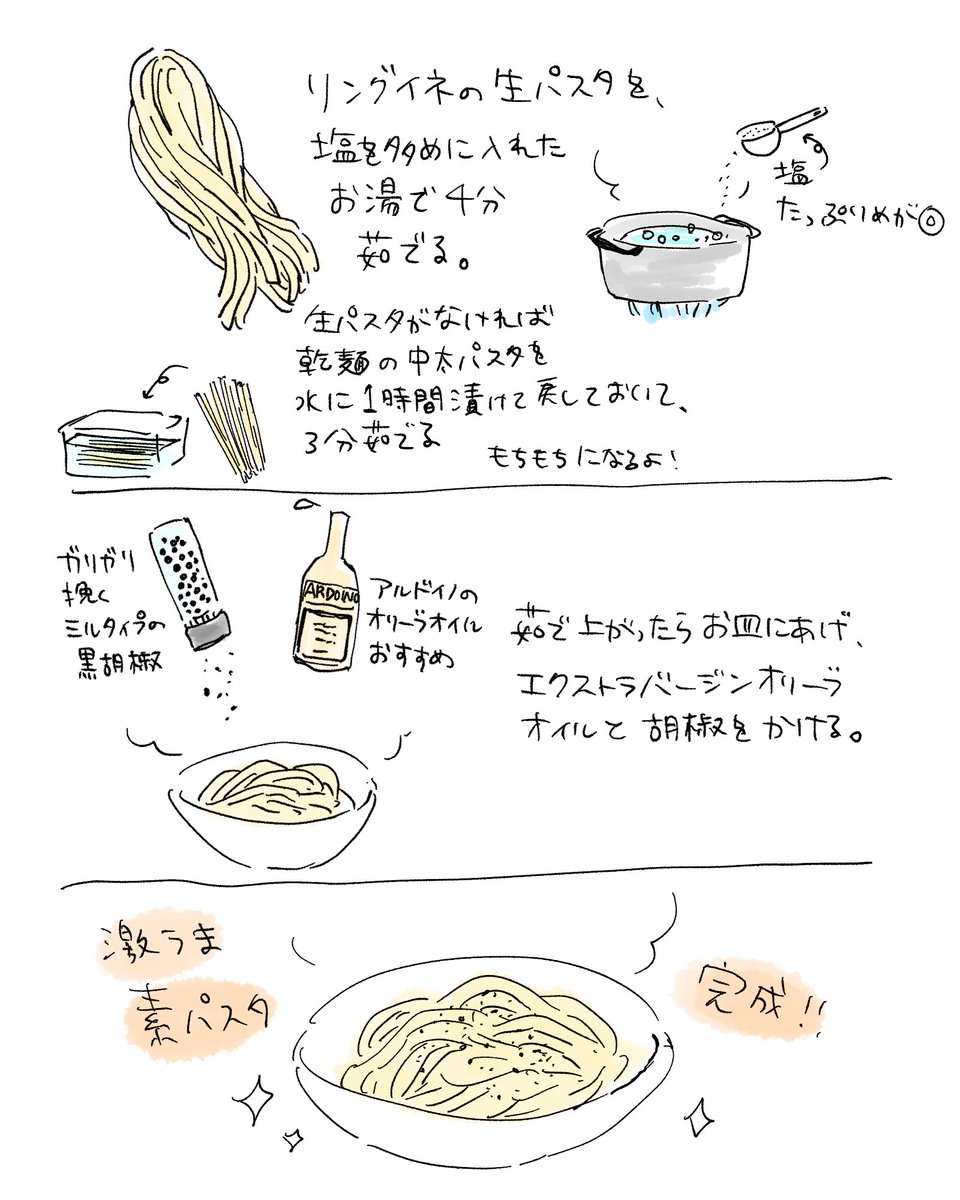 リングイネの生パスタを、
塩を多めに入れた
お湯で4分
茹でる。
塩
たっぷりめが◎
生パスタがなければ
乾麺の中太パスタを
水に1時間漬けて戻しておいて、
3分茹でる
もちもちになるよ!
ガリガリ
挽く
ミルタイプの
黒胡椒
ARDOINO
アルドイノの
オリーブオイル
おすすめ
茹で上がったらお皿にあげ、
エクストラバージンオリーブ
オイルと胡椒をかける。
激うま
素パスタ
完成!!